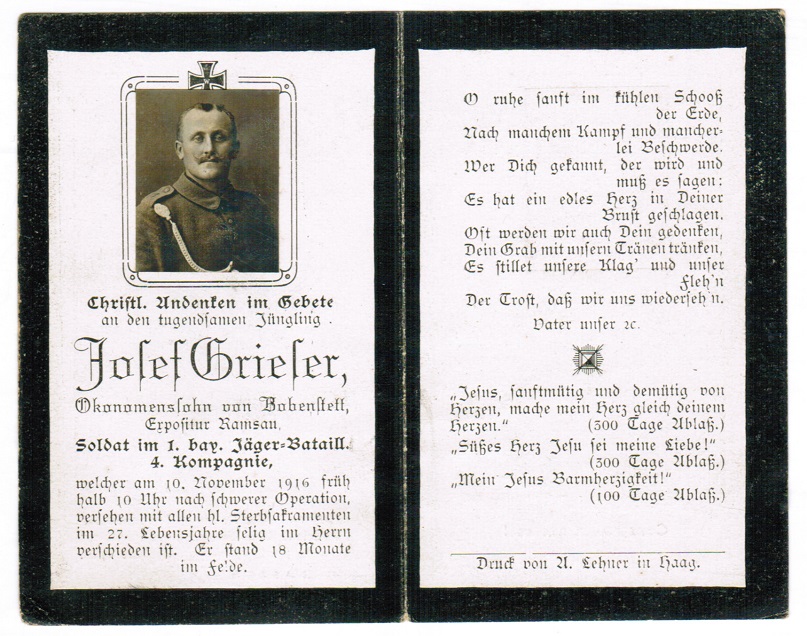 W
Christl. Andenken im Gebete
an den tugendsamen Jüngling
Josef Grieser,
Ökonomenssohn von Bobenstett,
Expositur Ramsau,
Soldat im 1. bay. Jäger-Bataill.
4. Kompagnie,
welcher am 10. November 1916 früh
halb 10 Uhr nach schwerer Operation,
versehen mit allen hl. Sterbsakramenten
im 27. Lebensjahre selig im Herrn
verschieden ist. Er stand 18 Monate
im Felde.
O ruhe sanft im kühlen Schooß
der Erde,
Nach manchem Kampf und mancher-
lei Beschwerde.
Wer Dich gekannt, der wird und
muß es sagen:
Es hat ein edles Herz in Deiner
Brust geschlagen.
Oft werden wir auch Dein gedenken,
Dein Grab mit unsern Tränen tränken,
Es stillet unsere Klag' und unser
Fleh'n
Der Trost, daß wir uns wiederseh'n.
Vater unser ꝛc.
„Jesus, sanftmütig und demütig von
Herzen, mache mein Herz gleich deinem
Herzen.“ (300 Tage Ablaß.)
„Süßes Herz Jesu sei meine Liebe!“
(300 Tage Ablaß.)
„Mein Jesus Barmherzigkeit!“
(100 Tage Ablaß.)
Druck von A. Lehner in Haag.